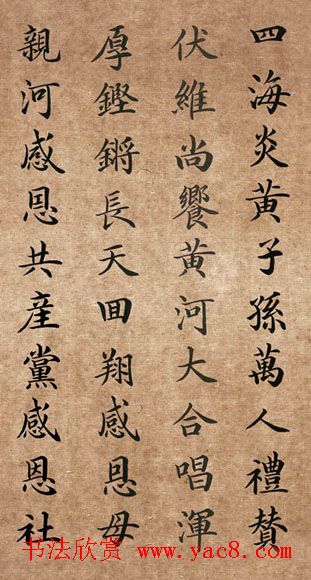 四海炎黃子孫萬人禮賛
伏維尚饗黃河大合唱渾
厚鏗鏘長天回翔感恩母
親河感恩共産黨感恩社
书法欣赏 www.yac8.com